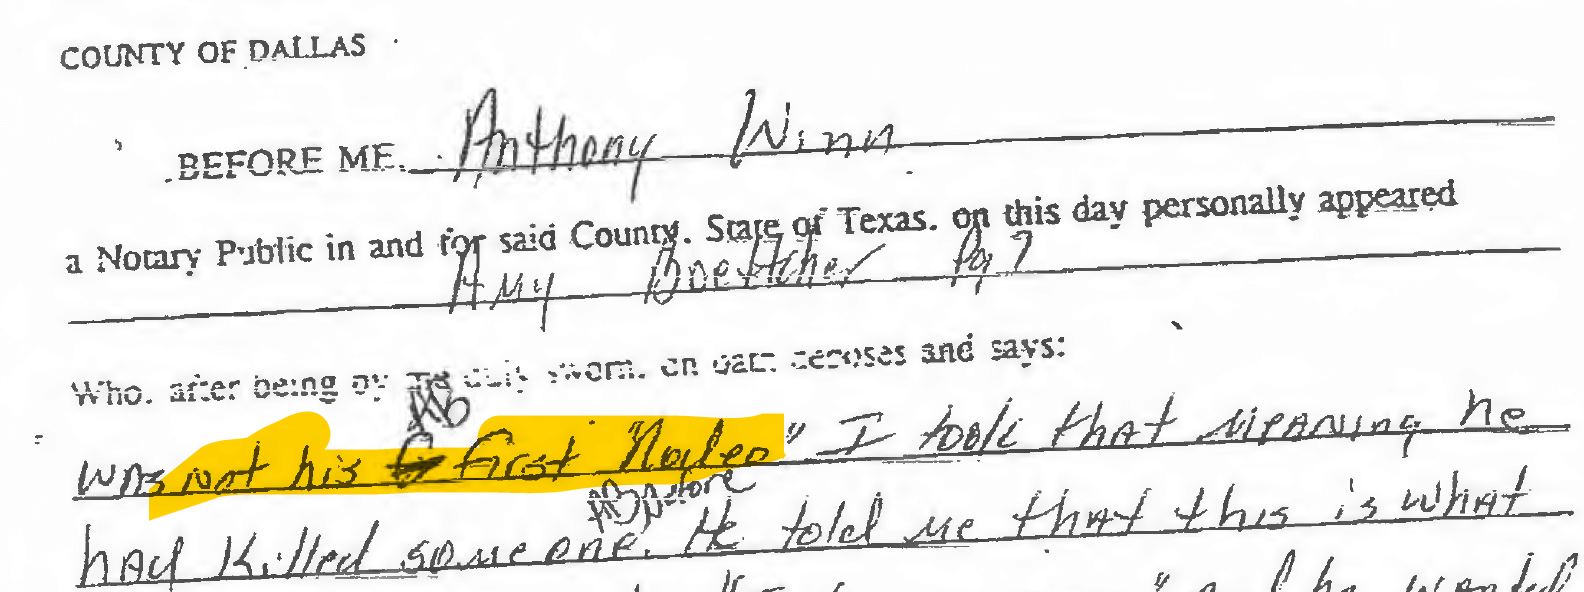 COUNTY OF DALLAS
BEFORE ME. Anthony Winn
a Notary Public in and for said County. State of Texas. on this day personally appeared
Amy Boettcher Pg 7
Who. after being by duly sworn. on oath deposes and says:
was not his first "Rodeo" I took that meaning he
AB AB before
had killed someone. He told me that this is what
" and he wanted